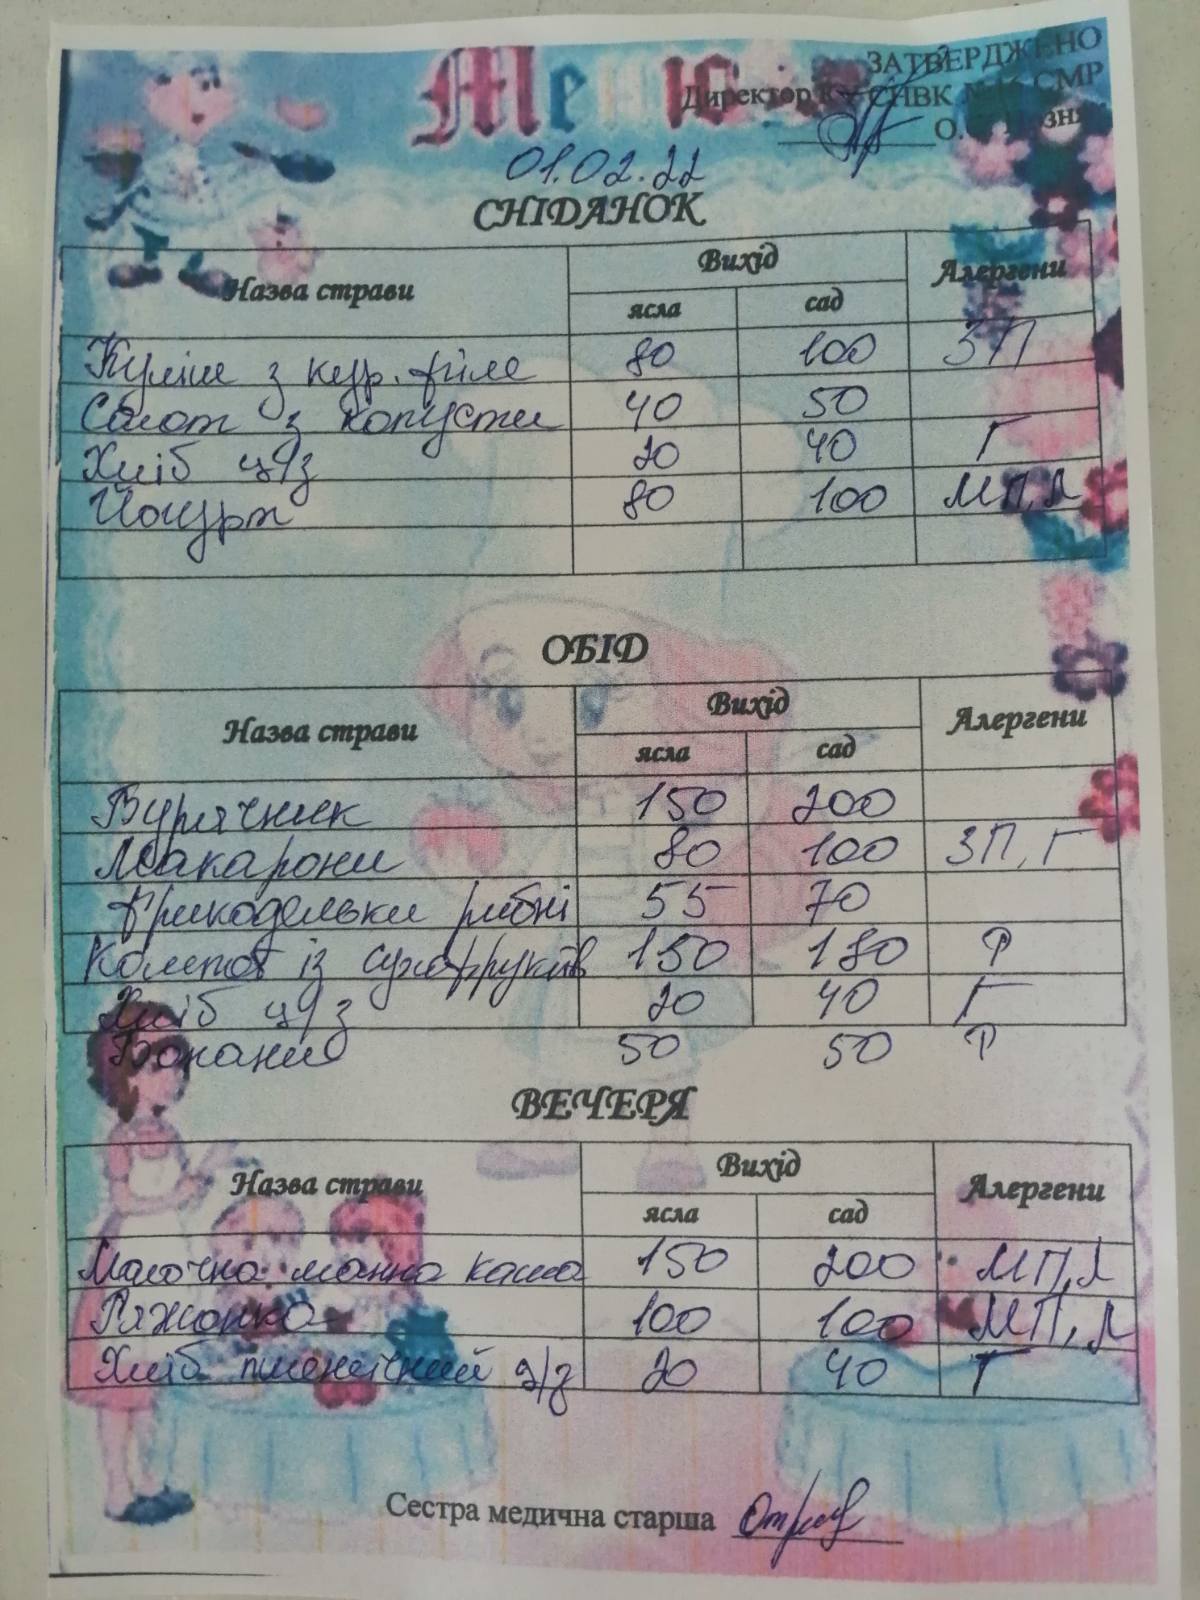 Меню
ЗАТВЕРДЖЕНО
Директор СНВК СМР
О.
01.02.22
СНІДАНОК
Назва страви Вихід Алергени
ясла сад
Куліш з кур. філе 80 100 ЗП
Салат з капусти 40 50
Хліб ц/з 20 40 Г
Йогурт 80 100 МП, Л
ОБІД
Назва страви Вихід Алергени
ясла сад
Бурячник 150 200
Макарони 80 100 ЗП, Г
фрикадельки рибні 55 70
Компот із сухофруктів 150 180 Р
Хліб ц/з 20 40 Г
Банани 50 50 Р
ВЕЧЕРЯ
Назва страви Вихід Алергени
ясла сад
Молочна манна каша 150 200 МП, Л
Ряжанка 100 100 МП, Л
Хліб пшеничний з/з 20 40 Г
Сестра медична старша